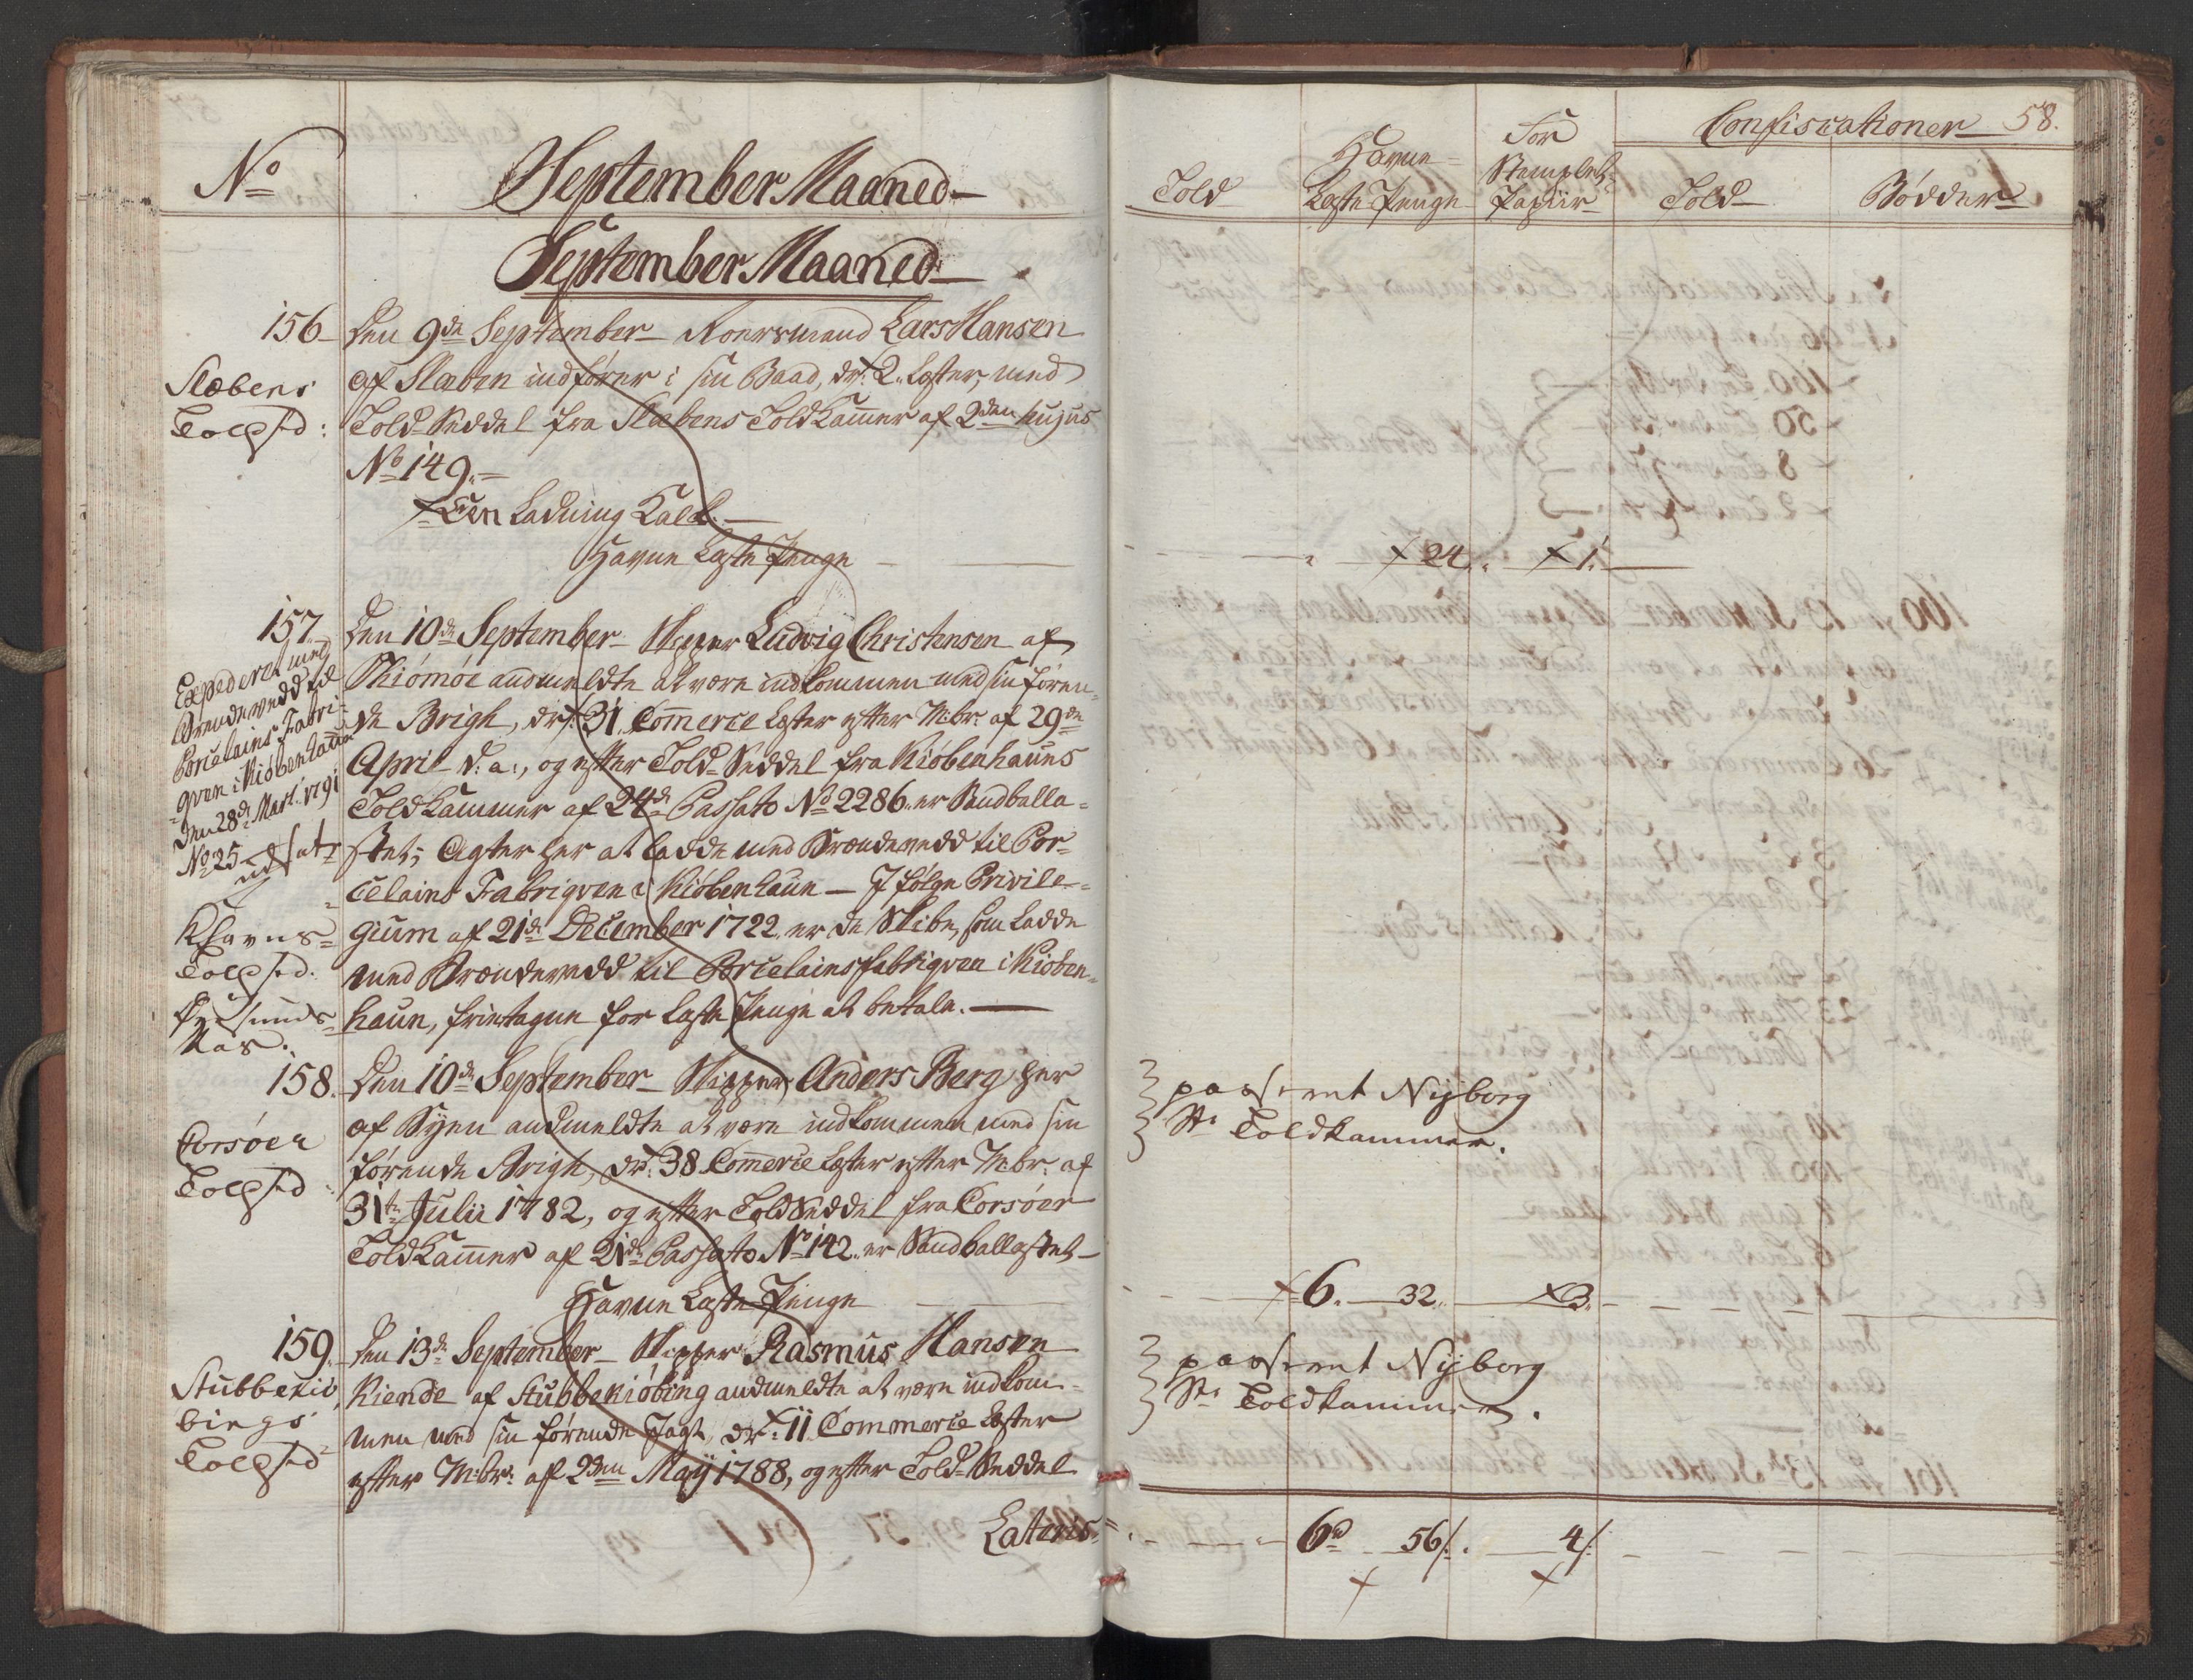 No
September Maaned
September Maaned
156
Den 9de September Roersmand Lars Hansen
Slæbens
Toldsed:
af Slæben indfører i sin Baad, dr: 2 Læster, med
Told-Seddel fra Slæbens Told Kammer af 2den hujus
No 149.
Een Ladning Kald.
Havne Læste Penge
157
Expederet med
Brændevedd til
Porcelains Fabri-
qven i Kiøbenhaun
den 28de Mart. 1791
No 25
udsat
Khavns
Toldsed:
Øresunds
Pas.
Den 10de September Skipper Ludvig Christensen af
Thiømøe andmeldte at være indkommen med sin føren-
de Brigh, dr: 31 Commerce Læster efter Mbr: af 29de
April d: a:, og efter Told-Seddel fra Kiøbenhauns
Told Kammer af 24de Passato No 2286 er Sandballa-
stet; Agter her at ladde med Brændevedd til Por-
celains Fabriqven i Kiøbenhaun — I følge Privile-
gium af 21de December 1722 er de Skibe, som ladde
med Brændevedd til Porcelainsfabriqven i Kiøben-
haun, frietagne for Læste Penge at betale.
158
Corsøer
Toldsed:
Den 10de September Skipper Anders Berg her
af Byen andmeldte at være indkommen med sin
førende Brigh, dr: 38 Commerce Læster efter Mbr: af
31te Julii 1782, og efter Told Seddel fra Corsøer
Told Kammer af 21de Passato No 142 er Sandballastet
Havne Læste Penge
159
Stubbekiø-
bings
Toldsed
Den 13de September Skipper Rasmus Hansen
Kiende af Stubbekiøbing andmeldte at være indkom-
men med sin førende Jagt, dr: 11 Commerce Læster
efter Mbr: af 2den Maij 1788, og efter Told-Seddel
Lateris
58.
Told
Havne
Læste Penge
For
Stemplet
Papiir
Confiscationer
Told
Bødder
24 1
passeret Nyborg
Toldkammer.
6. 32 3
passeret Nyborg
Toldkammer.
6 56 4